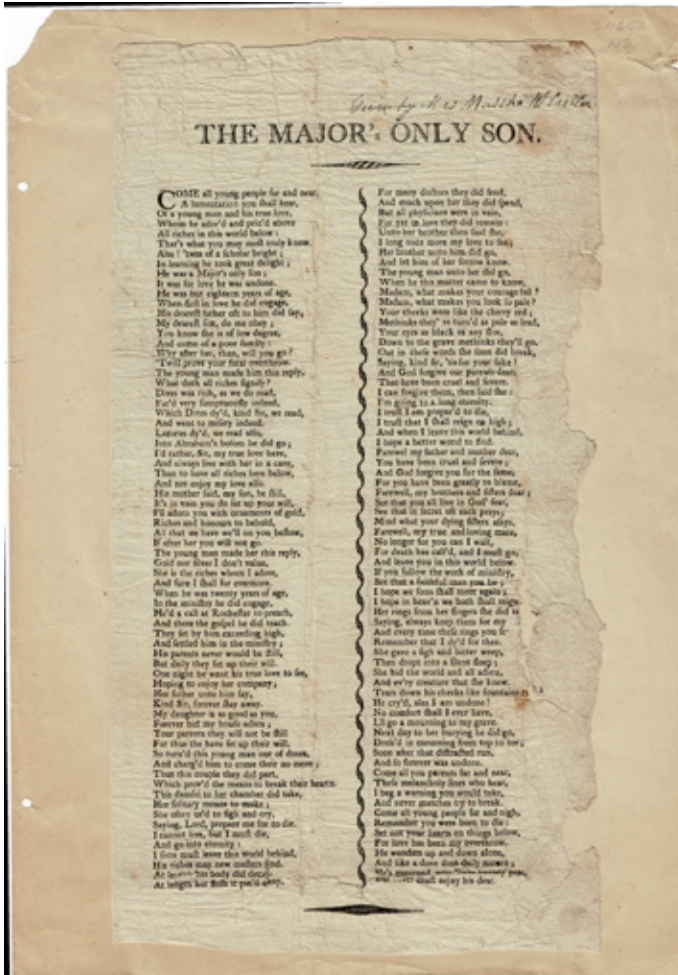 THE MAJOR's ONLY SON.
COME all young people far and near,
A lamentation you shall hear,
Of a young man and his true love,
Whom he ador'd and priz'd above
All riches in this world below:
That's what you may most truly know.
Alas! 'twas of a scholar bright;
In learning he took great delight;
He was a Major's only son;
It was for love he was undone.
He was but eighteen years of age,
When first in love he did engage,
His dearest father oft to him did say,
My dearest son, do me obey;
You know she is of low degree,
And come of a poor family:
Why after her, then, will you go?
'Twill prove your fatal overthrow.
The young man made him this reply,
What doth all riches signify?
Dives was rich, as we do read,
Far'd very sumptuously indeed,
Which Dives dy'd, kind Sir, we read,
And went to misery indeed.
Lazarus dy'd, we read also,
Into Abraham's bosom he did go;
I'd rather, Sir, my true love have,
And always live with her in a cave,
Than to have all riches here below,
And not enjoy my love also.
His mother said, my son, be still,
It's in vain you do set up your will,
I'll adorn you with ornaments of gold,
Riches and honours to behold,
All that we have we'll on you bestow,
If after her you will not go.
The young man made her this reply,
Gold nor silver I don't value,
She is the riches whom I adore,
And sure I shall for evermore.
When he was twenty years of age,
In the ministry he did engage,
He'd a call at Rochester to preach,
And there the gospel he did teach.
They set by him exceeding high,
And settled him in the ministry;
His parents never would be still,
But daily they set up their will.
One night he went his true love to see,
Hoping to enjoy her company;
Her father unto him say,
Kind Sir, forever stay away.
My daughter is as good as you,
Forever bid my house adieu;
Your parents they will not be still
For thus the have set up their will.
So turn'd this young man out of doors,
And charg'd him to come their no more;
Thus this couple they did part,
Which prov'd the means to break their hearts.
This damsel to her chamber did take,
Her solitary moans to make;
She often us'd to sigh and cry,
Saying, Lord, prepare me for to die.
I cannot live, but I must die,
And go into eternity:
I soon must leave this world behind,
His riches may new masters find.
At length her body did decay,
At length her flesh it pin'd away,
For many doctors they did send,
And much upon her they did spend,
But all physicians were in vain,
For yet in love they did remain:
Unto her brother then said she,
I long once more my love to see;
Her brother unto him did go,
And let him of her sorrow know.
The young man unto her did go,
When he this matter came to know,
Madam, what makes your courage fail?
Madam, what makes you look so pale?
Your cheeks were like the cherry red;
Methinks they're turn'd as pale as lead,
Your eyes as black as any sloe,
Down to the grave methinks they'll go.
Out in these words she soon did break,
Saying, kind sir, 'tis for your sake!
And God forgive our parents dear,
That have been cruel and severe.
I can forgive them, then said she:
I'm going to a long eternity.
I trust I am prepar'd to die,
I trust that I shall reign on high;
And when I leave this world behind,
I hope a better world to find.
Farewel my father and mother dear,
You have been cruel and severe;
And God forgive you for the same,
For you have been greatly to blame,
Farewell, my brothers and sisters dear;
See that you all live in God' fear,
See that in secret oft each prays;
Mind what your dying sisters says,
Farewell, my true and loving mate,
No longer for you can I wait,
For death has call'd, and I must go,
And leave you in this world below.
If you follow the work of ministry,
See that a faithful man you be;
I hope we soon shall meet again;
I hope in heav'n we both shall reign.
Her rings from her fingers she did
Saying, always keep them for my
And every time these rings you
Remember that I dy'd for thee.
She gave a sigh and bitter weep,
Then dropt into a silent sleep;
She bid the world and all adieu,
And ev'ry creature that she knew.
Tears down his cheeks like fountains
He cry'd, alas I am undone!
No comfort shall I ever have,
I'll go a mourning to my grave.
Next day to her burying he did go,
Dress'd in mourning from top to toe;
Soon after that distracted run,
And so forever was undone.
Come all you parents far and near,
These melancholy lines who hear,
I beg a warning you would take,
And never matches try to break.
Come all young people far and nigh,
Remember you were born to die:
Set not your hearts on things below,
For love has been my overthrow.
He wanders up and down alone,
And like a dove does daily mourn;
He's mourned
must enjoy his dear.